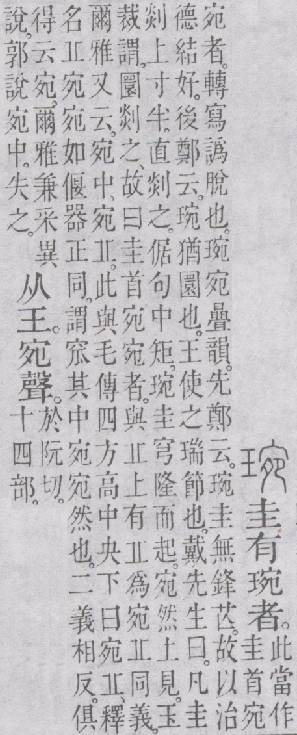 琬 圭有琬者。
此當作
圭首宛
宛者。轉寫譌脫也。琬宛疊韻。先鄭云。琬圭無鋒芒。故以治
德結好。後鄭云。琬猶圜也。王使之瑞節也。戴先生曰。凡圭
剡上寸半。直剡之。倨句中矩。琬圭穹隆而起。宛然上見。玉
裁謂。圜剡之。故曰圭首宛宛者。與丘上有丘爲宛丘同義。
爾雅又云。宛中、宛丘。此與毛傳四方高中央下曰宛丘、釋
名丘宛宛如偃器正同。謂窊其中宛宛然也。二義相反。俱
得云宛。爾雅兼采異
說。郭說宛中。失之。
从王。宛聲。
於阮切。
十四部。